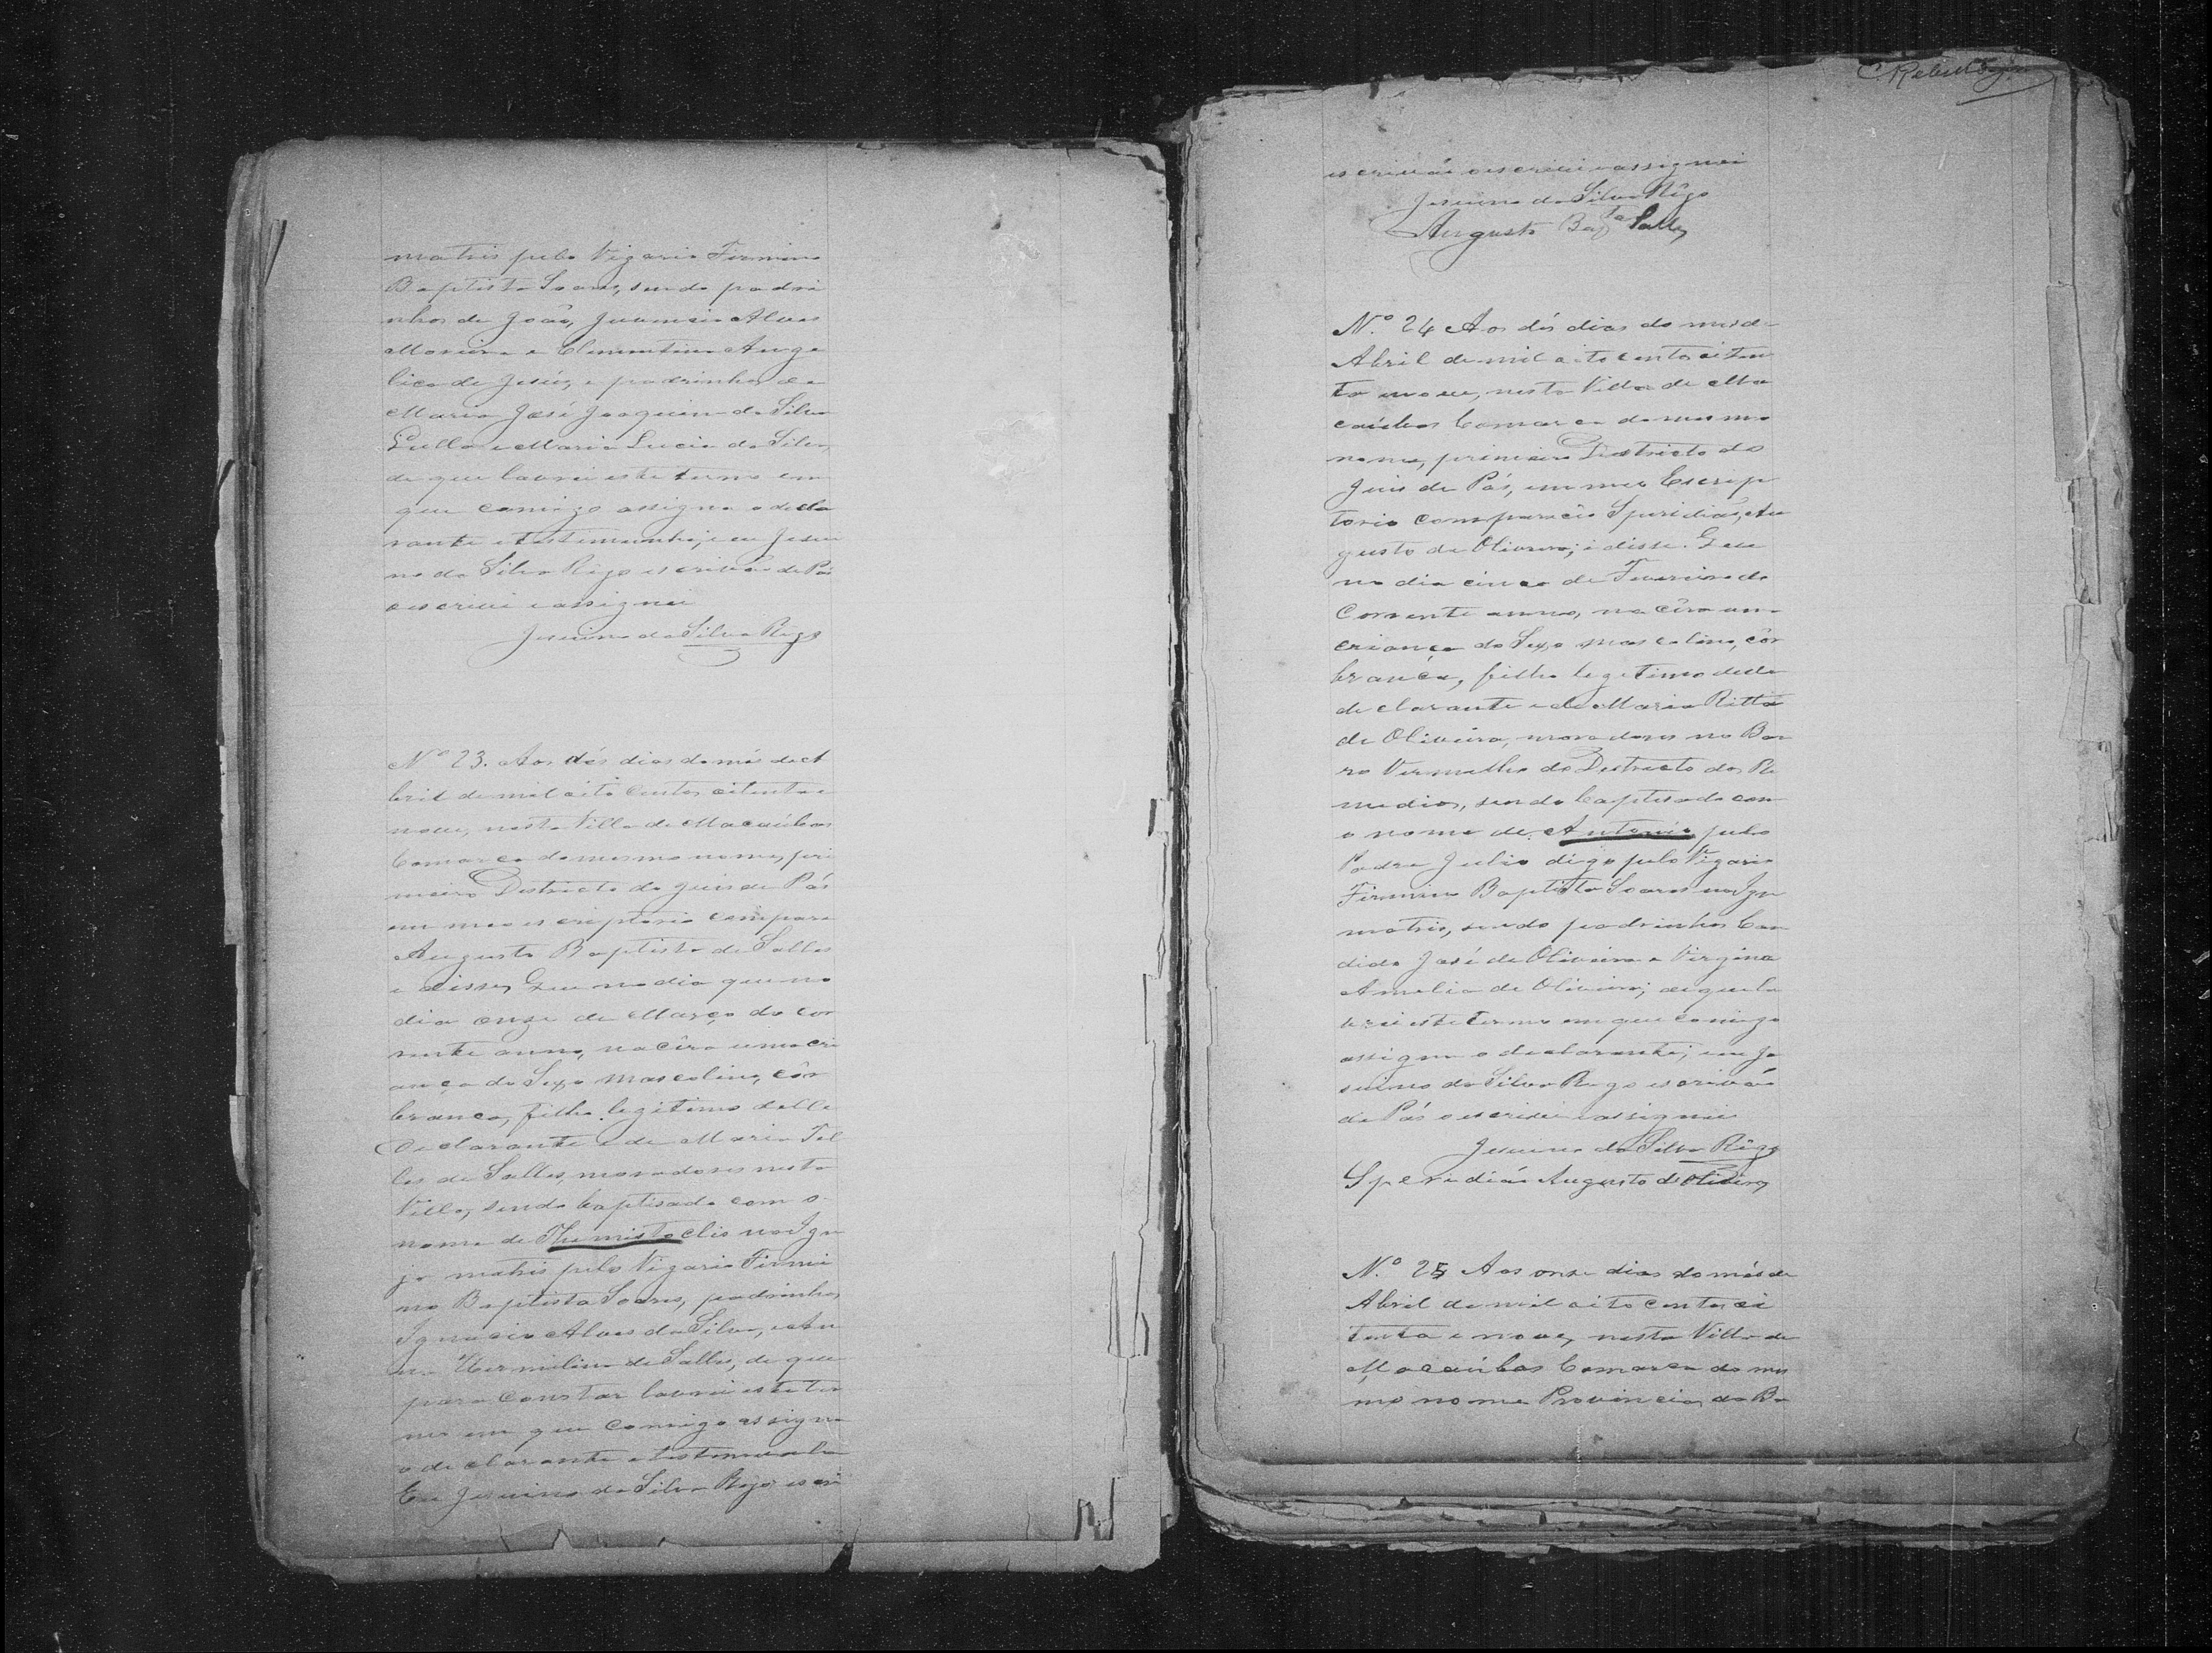 matris pelo Vigario Firmino
Baptista Soares, sendo padri
nhos de João, Juvencio Alves
Moreira e Clementina Ange
lica de Jesús, e padrinhos de
Maria José Joaquim da Silva
e Maria Lucia da Silva,
de que lavrei este termo em
que comigo assigna o decla
rante e testemunha; e eu Jesui
no da Silva Rego escrivão de Pás
o escrivi e assignei
Jesuino da Silva Rego
Nº 23. Aos dés dias do més de A
bril de mil oito centos oitenta e
nove, nesta Villa de Macaúbas
Comarca do mesmo nome, pri
meiro Districto do Juis de Pás
em meo escriptorio compare
Augusto Baptista de Salles
e disse, Que no dia que no
dia onze de Março do cor
rente anno, nacêra uma cri
ança do Sexo masculino, côr
branca, filho legitimo delle
Declarante e de Maria Tel
les de Salles, moradores nesta
Villa, sendo baptisado com o
nome de Themistoclis na Igre
ja matris pelo Vigario Firmi
no Baptista Soares, padrinhos
Ignacio Alves da Silva, e An
na Hermilina de Salles, de que
para constar lavrei este ter
mo em que comigo assigna
o declarante e testemunha
Eu Jesuino da Silva Rego escri
escrivão o escrivi e assignei
Jesuino da Silva Rêgo
Augusto Bapta Salles
N.º 24 Aos dés dias do mes de
Abril de mil oito centos oiten
ta nove, nesta Villa de Ma
caúbas Comarca do mesmo
nome, primeiro Districto do
Juis de Pás, em meo Escrip
torio compareceo Speridião Au
gusto de Oliveira; e disse. Que
no dia cinco de Fevereiro do
Corrente anno, nacêra uma
criança do Sexo masculino, côr
branca, filho legitimo delle
declarante e de Maria Ritta
de Oliveira, moradores no Bar
ro Vermelho do Districto dos Re
medios, sendo baptisado com
o nome de Antonio, pelo
Padre Julio digo pelo Vigario
Firmino Baptista Soares na Igre
matris, sendo padrinhos Can
dido José de Oliveira e Virginia
Amelia de Oliveira; de que la
vrei este termo em que comigo
assigna o declarante; eu Je
suino da Silva Rego escrivão
de Pás o escrivi e assignei
Jesuino da Silva Rêgo
Speridião Augusto de Oliveira
N.º 25 Aos onse dias do més de
Abril de mil oito centos oi
tenta e nove, nesta Villa de
Macaúbas Comarca do mes
mo nome Provincia da Ba